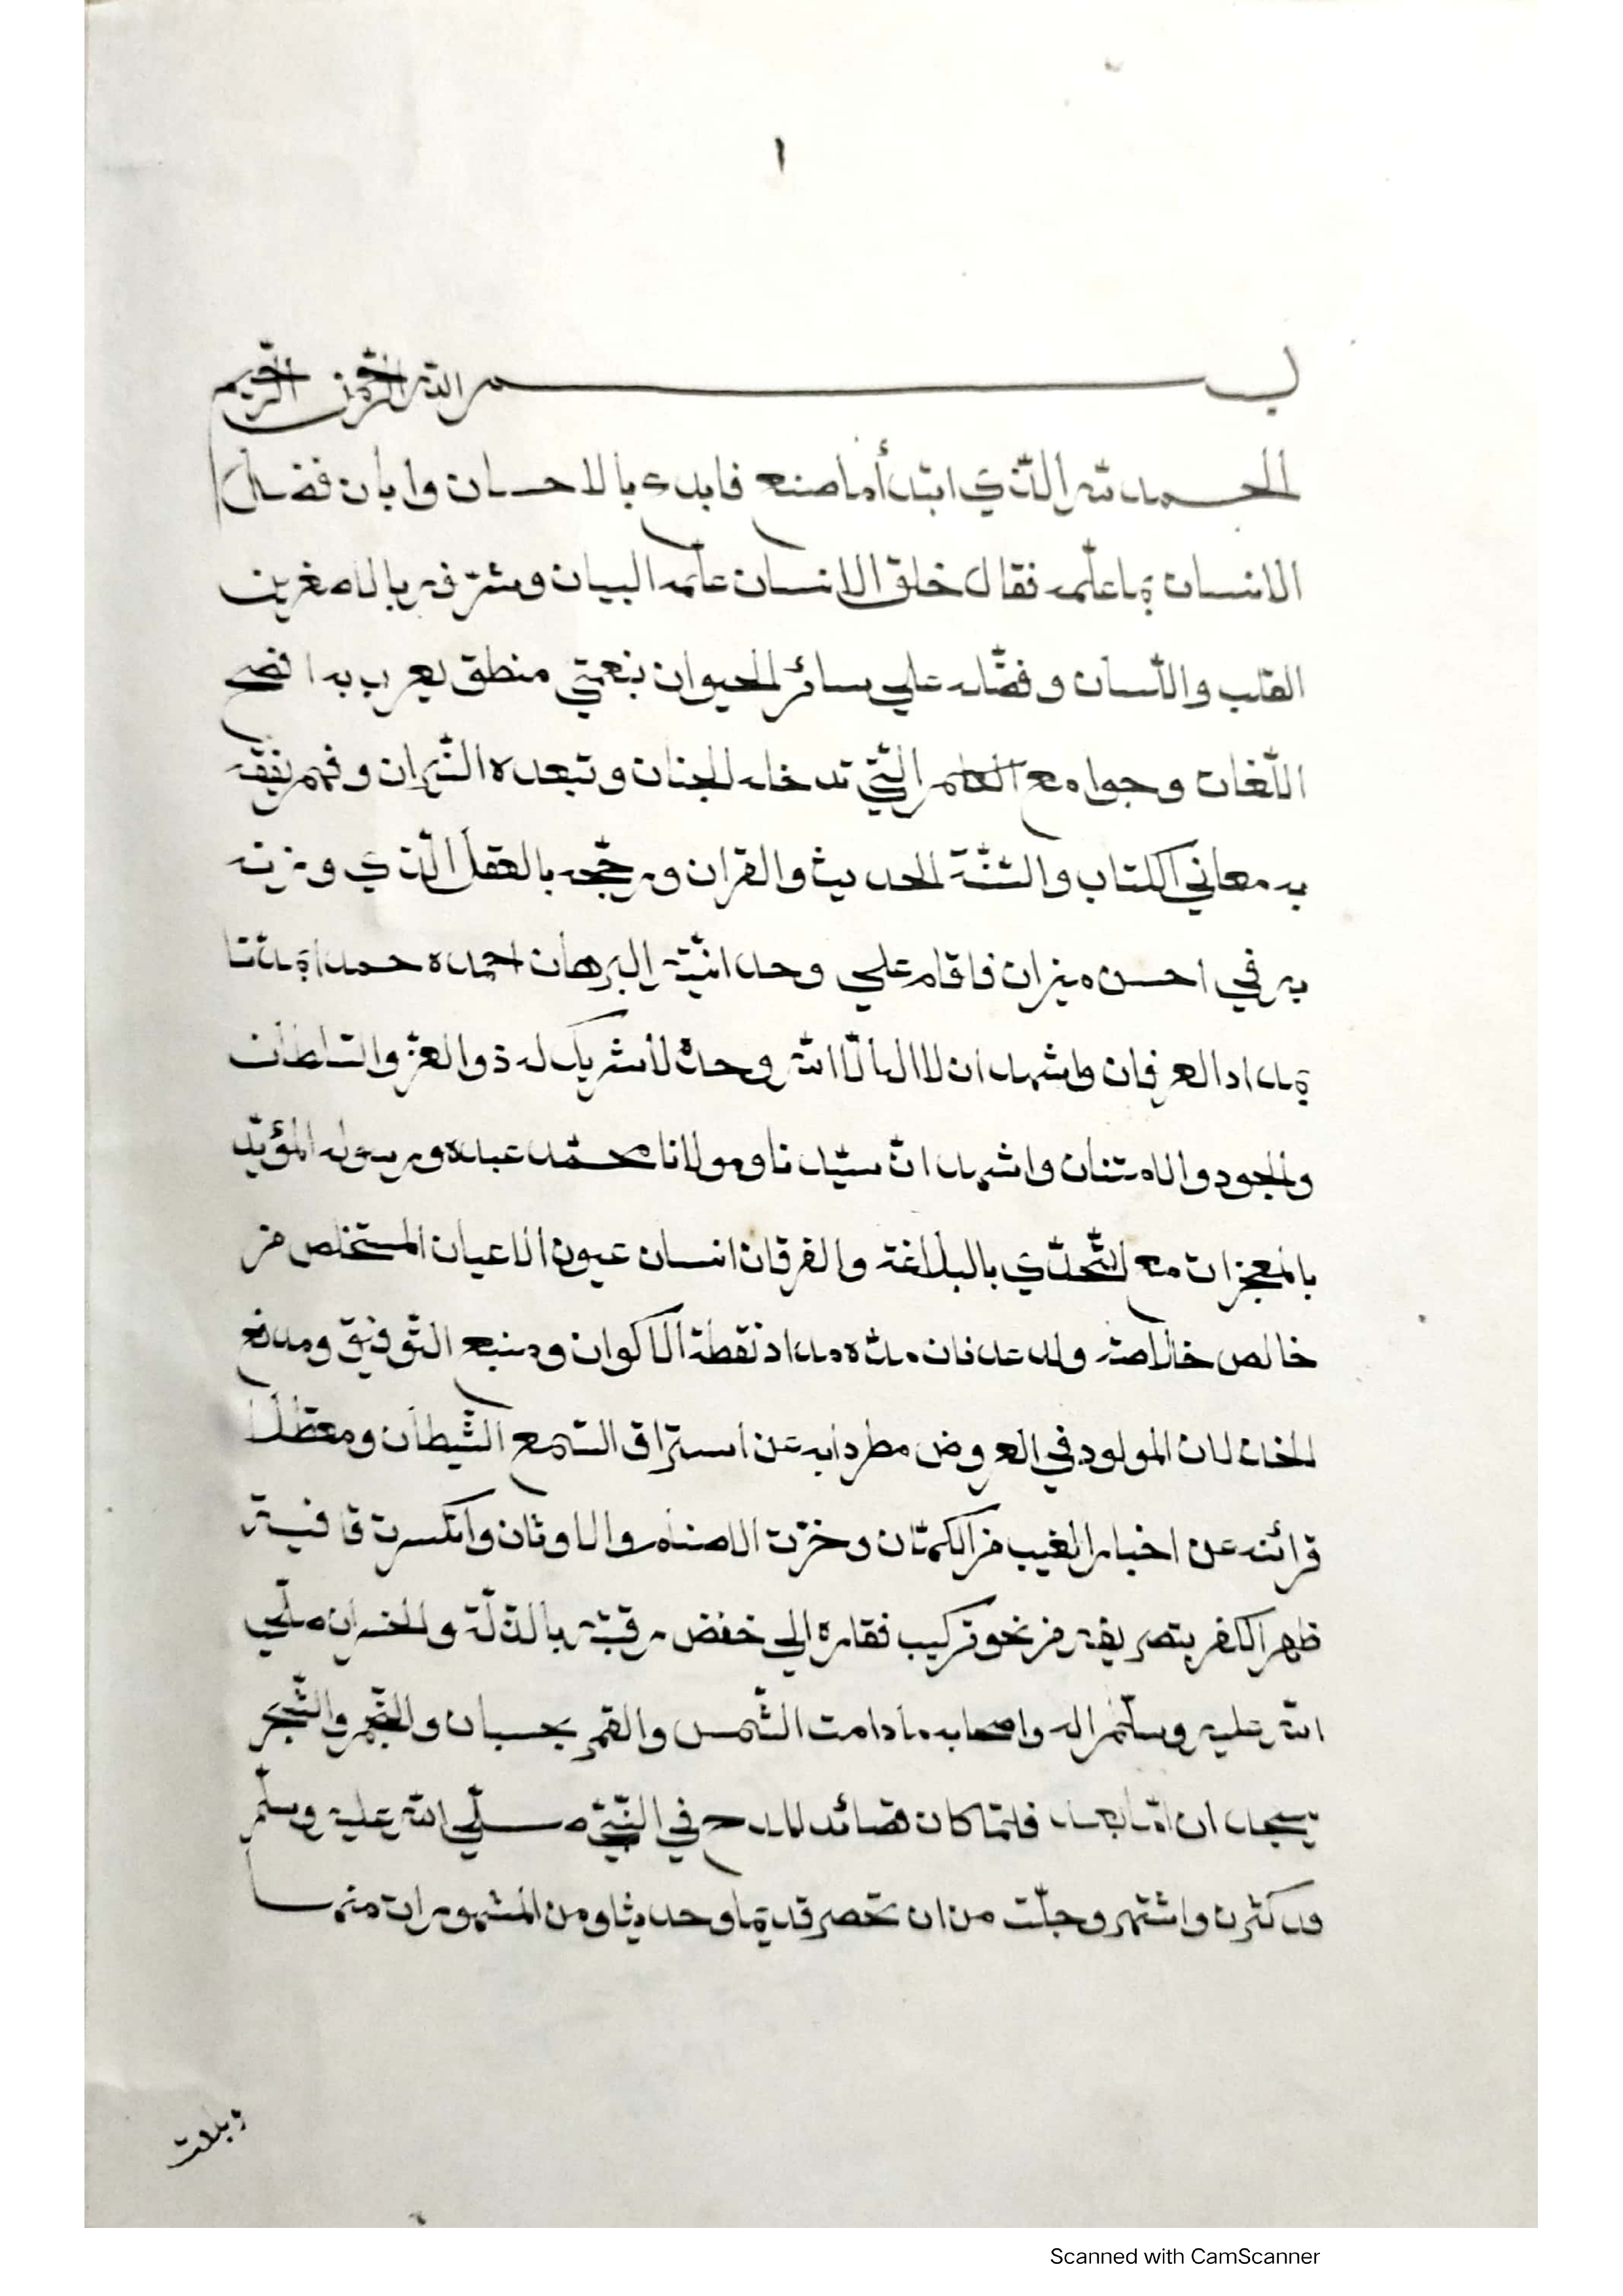 ١
بسم الله الرحمن الرحيم
الحمد لله الذي ابتدأ ما صنع فابدع بالاحسان وابان فضل
الانسان بما علمه فقال خلق الانسان علمه البيان وشرفه بالاصغرين
القلب واللسان وفضله علي سائر الحيوان بنعمتي منطق يعرب به افصح
اللغات وجوامع الكلم التي تدخله الجنان وتبعده النيران وفهم يفقه
به معاني الكتاب والسنة الحديث والقران ورجحه بالعقل الذي وزنه
به في احسن ميزان فاقام علي وحدانيته البرهان احمده حمدا يمدنا
بمداد العرفان واشهد ان لا اله الا الله وحده لا شريك له ذو العز والسلطان
والجود والامتنان واشهد ان سيدنا ومولانا محمد عبده ورسوله المؤيد
بالمعجزات مع التحدي بالبلاغة والفرقان انسان عيون الاعيان المستخلص من
خالص خلاصة ولد عدنان مدة مداد نقطة الاكوان ومنبع التوفيق ومدفع
الخذلان المولود في العروض مطرد به عن استراق السمع الشيطان ومعطلا
قرائنه عن اخبار الغيب من الكمتان وخرت الاصنام والاوثان وانكسرت قافية
ظهر الكفر بتصريفه من نحو تركيب فقاره الي خفض رقبته بالذلة والخسران صلي
الله عليه وسلم اله واصحابه ما دامت الشمس والقمر بحسبان والنجم والشجر
يسجدان اما بعد فلما كان قصائد المدح في النبي صلي الله عليه وسلم
قد كثرت واشتهر وجلت من ان تحصر قديما وحديثا ومن المشهورات منها
وبلات
Scanned with CamScanner